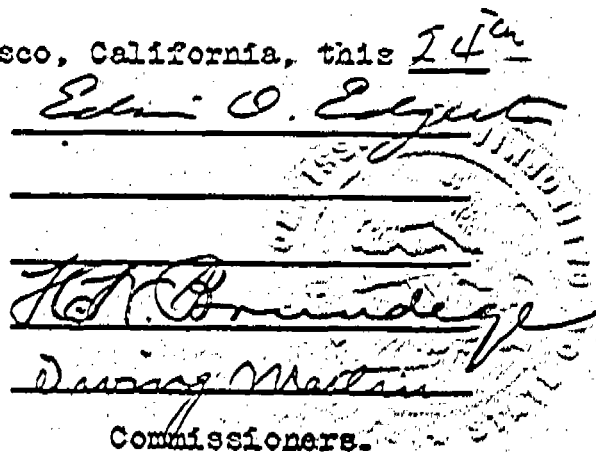 sco, California, this 24th
Edwin O. Edgerton
H. W. Brundige
Irving Martin
Commissioners.